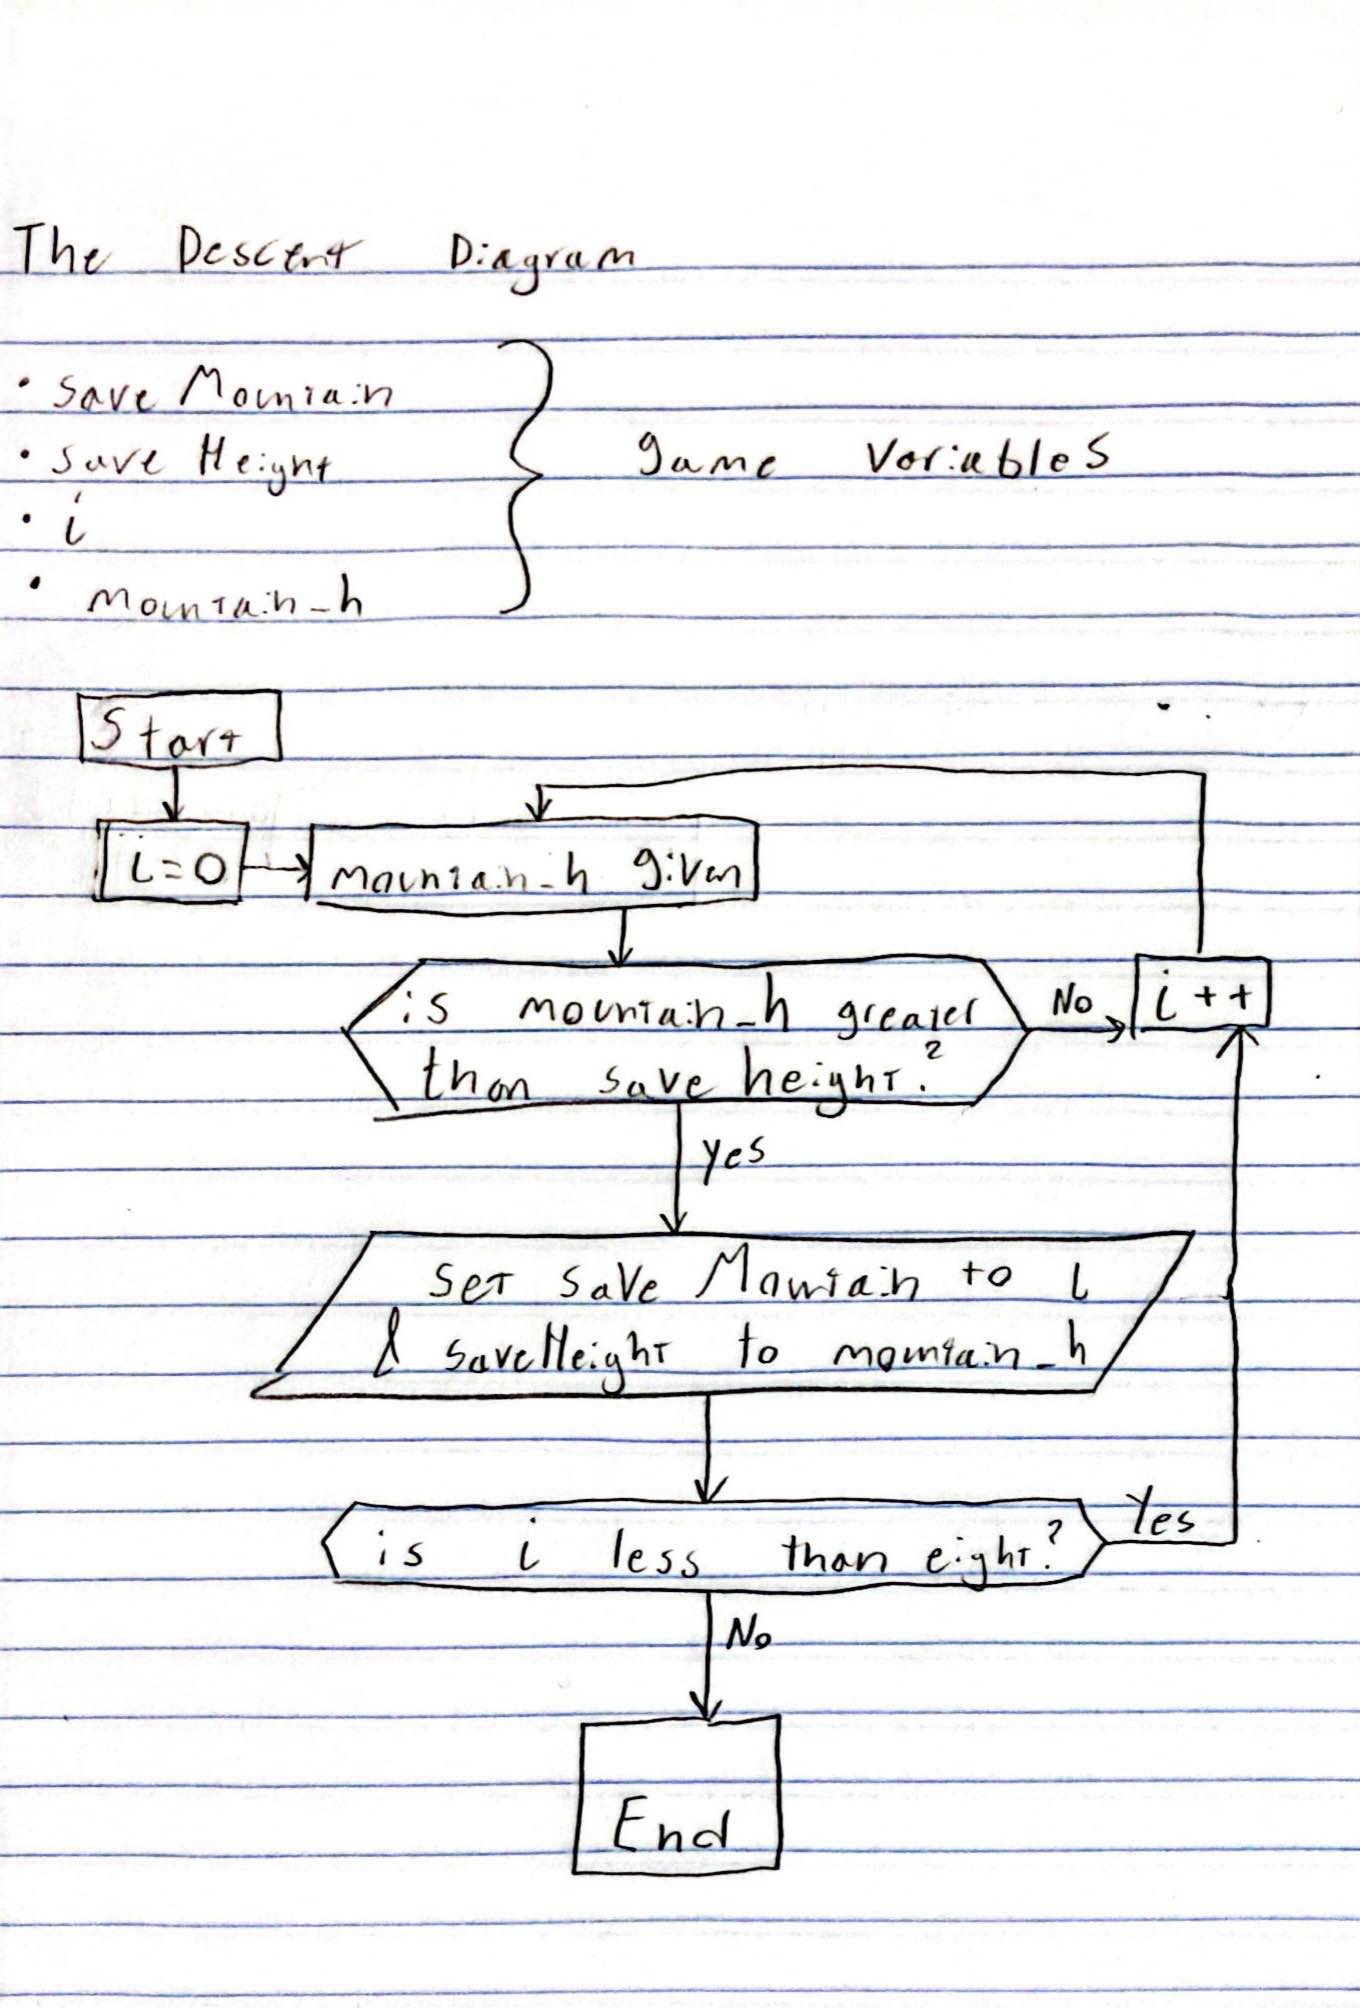 The Descent Diagram
• save Mountain
• save Height
• i
• mountain_h
game variables
Start
i=0
mountain_h given
is mountain_h greater
than save height?
No
i++
yes
set save Mountain to i
& saveHeight to mountain_h
is i less than eight?
Yes
No
End